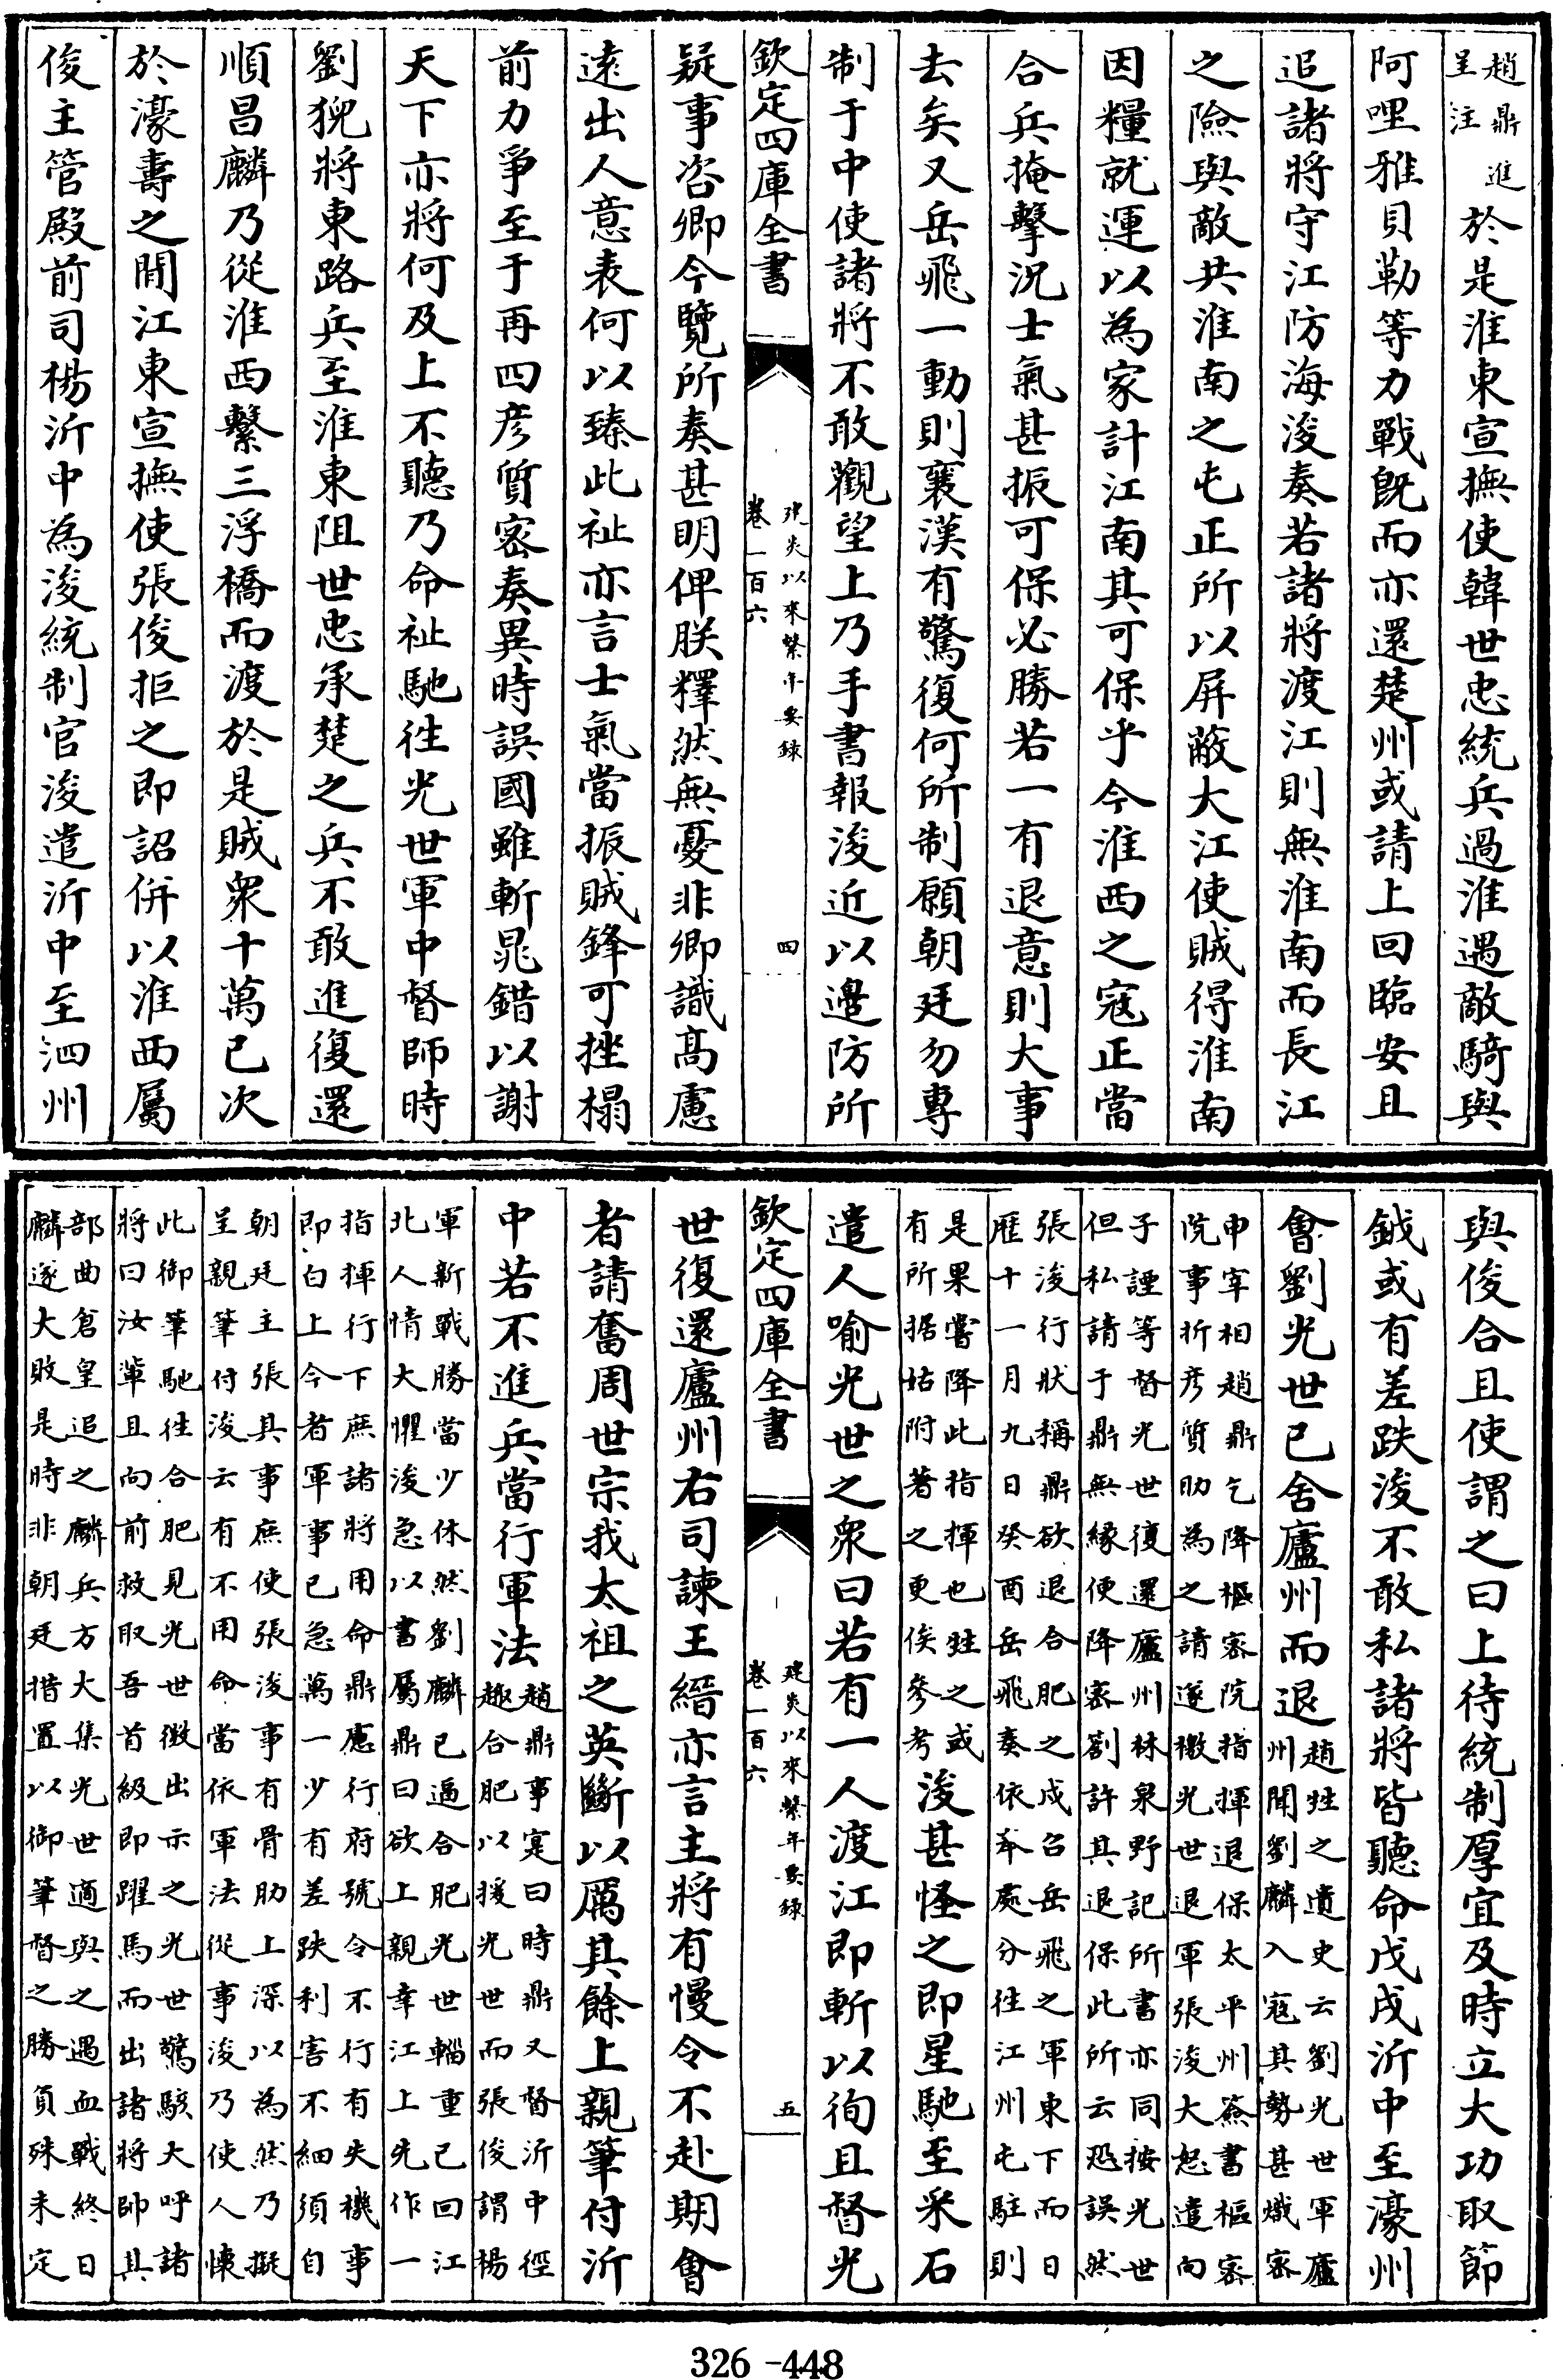 趙鼎進
呈注
於是淮東宣撫使韓世忠統兵過淮遇敵騎與
阿哩雅貝勒等力戰旣而亦還楚州或請上回臨安且
追諸將守江防海浚奏若諸將渡江則無淮南而長江
之險與敵共淮南之屯正所以屏蔽大江使賊得淮南
因糧就運以為家計江南其可保乎今淮西之寇正當
合兵掩擊況士氣甚振可保必勝若一有退意則大事
去矣又岳飛一動則襄漢有驚復何所制願朝廷勿專
制于中使諸將不敢觀望上乃手書報浚近以邊防所
欽定四庫全書
建炎以來繫年要錄
卷一百六
四
疑事咨卿今覽所奏甚明俾朕釋然無憂非卿識高慮
遠出人意表何以臻此祉亦言士氣當振賊鋒可挫榻
前力爭至于再四彥質密奏異時誤國雖斬晁錯以謝
天下亦將何及上不聽乃命祉馳往光世軍中督師時
劉猊將東路兵至淮東阻世忠承楚之兵不敢進復還
順昌麟乃從淮西繫三浮橋而渡於是賊衆十萬已次
於濠壽之間江東宣撫使張俊拒之即詔併以淮西屬
俊主管殿前司楊沂中為浚統制官浚遣沂中至泗州
與俊合且使謂之曰上待統制厚宜及時立大功取節
鉞或有差跌浚不敢私諸將皆聽命戊戌沂中至濠州
會劉光世已舍廬州而退
趙甡之遺史云劉光世軍廬
州聞劉麟入寇其勢甚熾密
申宰相趙鼎乞降樞密院指揮退保太平州簽書樞密
院事折彥質助為之請遂檄光世退軍張浚大怒遣向
子諲等督光世復還廬州林泉野記所書亦同按光世
但私請于鼎無緣便降密劄許其退保此所云恐誤然
張浚行狀稱鼎欲退合肥之戍召岳飛之軍東下而日
厯十一月九日癸酉岳飛奏依奉處分往江州屯駐則
是果嘗降此指揮也甡之或
有所据姑附著之更俟參考
浚甚怪之即星馳至采石
遣人喻光世之衆曰若有一人渡江即斬以徇且督光
欽定四庫全書
建炎以來繫年要錄
卷一百六
五
世復還廬州右司諫王縉亦言主將有慢令不赴期會
者請奮周世宗我太祖之英斷以厲其餘上親筆付沂
中若不進兵當行軍法
趙鼎事寔曰時鼎又督沂中徑
趣合肥以援光世而張俊謂楊
軍新戰勝當少休然劉麟已逼合肥光世輜重已回江
北人情大懼浚急以書屬鼎曰欲上親幸江上先作一
指揮行下庶諸將用命鼎應行府號令不行有失機事
即白上今者軍事已急萬一少有差跌利害不細須自
朝廷主張其事庶使張浚事有骨肋上深以為然乃擬
呈親筆付浚云有不用命當依軍法從事浚乃使人懐
此御筆馳往合肥見光世微出示之光世驚駭大呼諸
將曰汝軰且向前救取吾首級即躍馬而出諸將帥其
部曲倉皇追之麟兵方大集光世適與之遇血戰終日
麟遂大敗是時非朝廷措置以御筆督之勝負殊未定
326-448